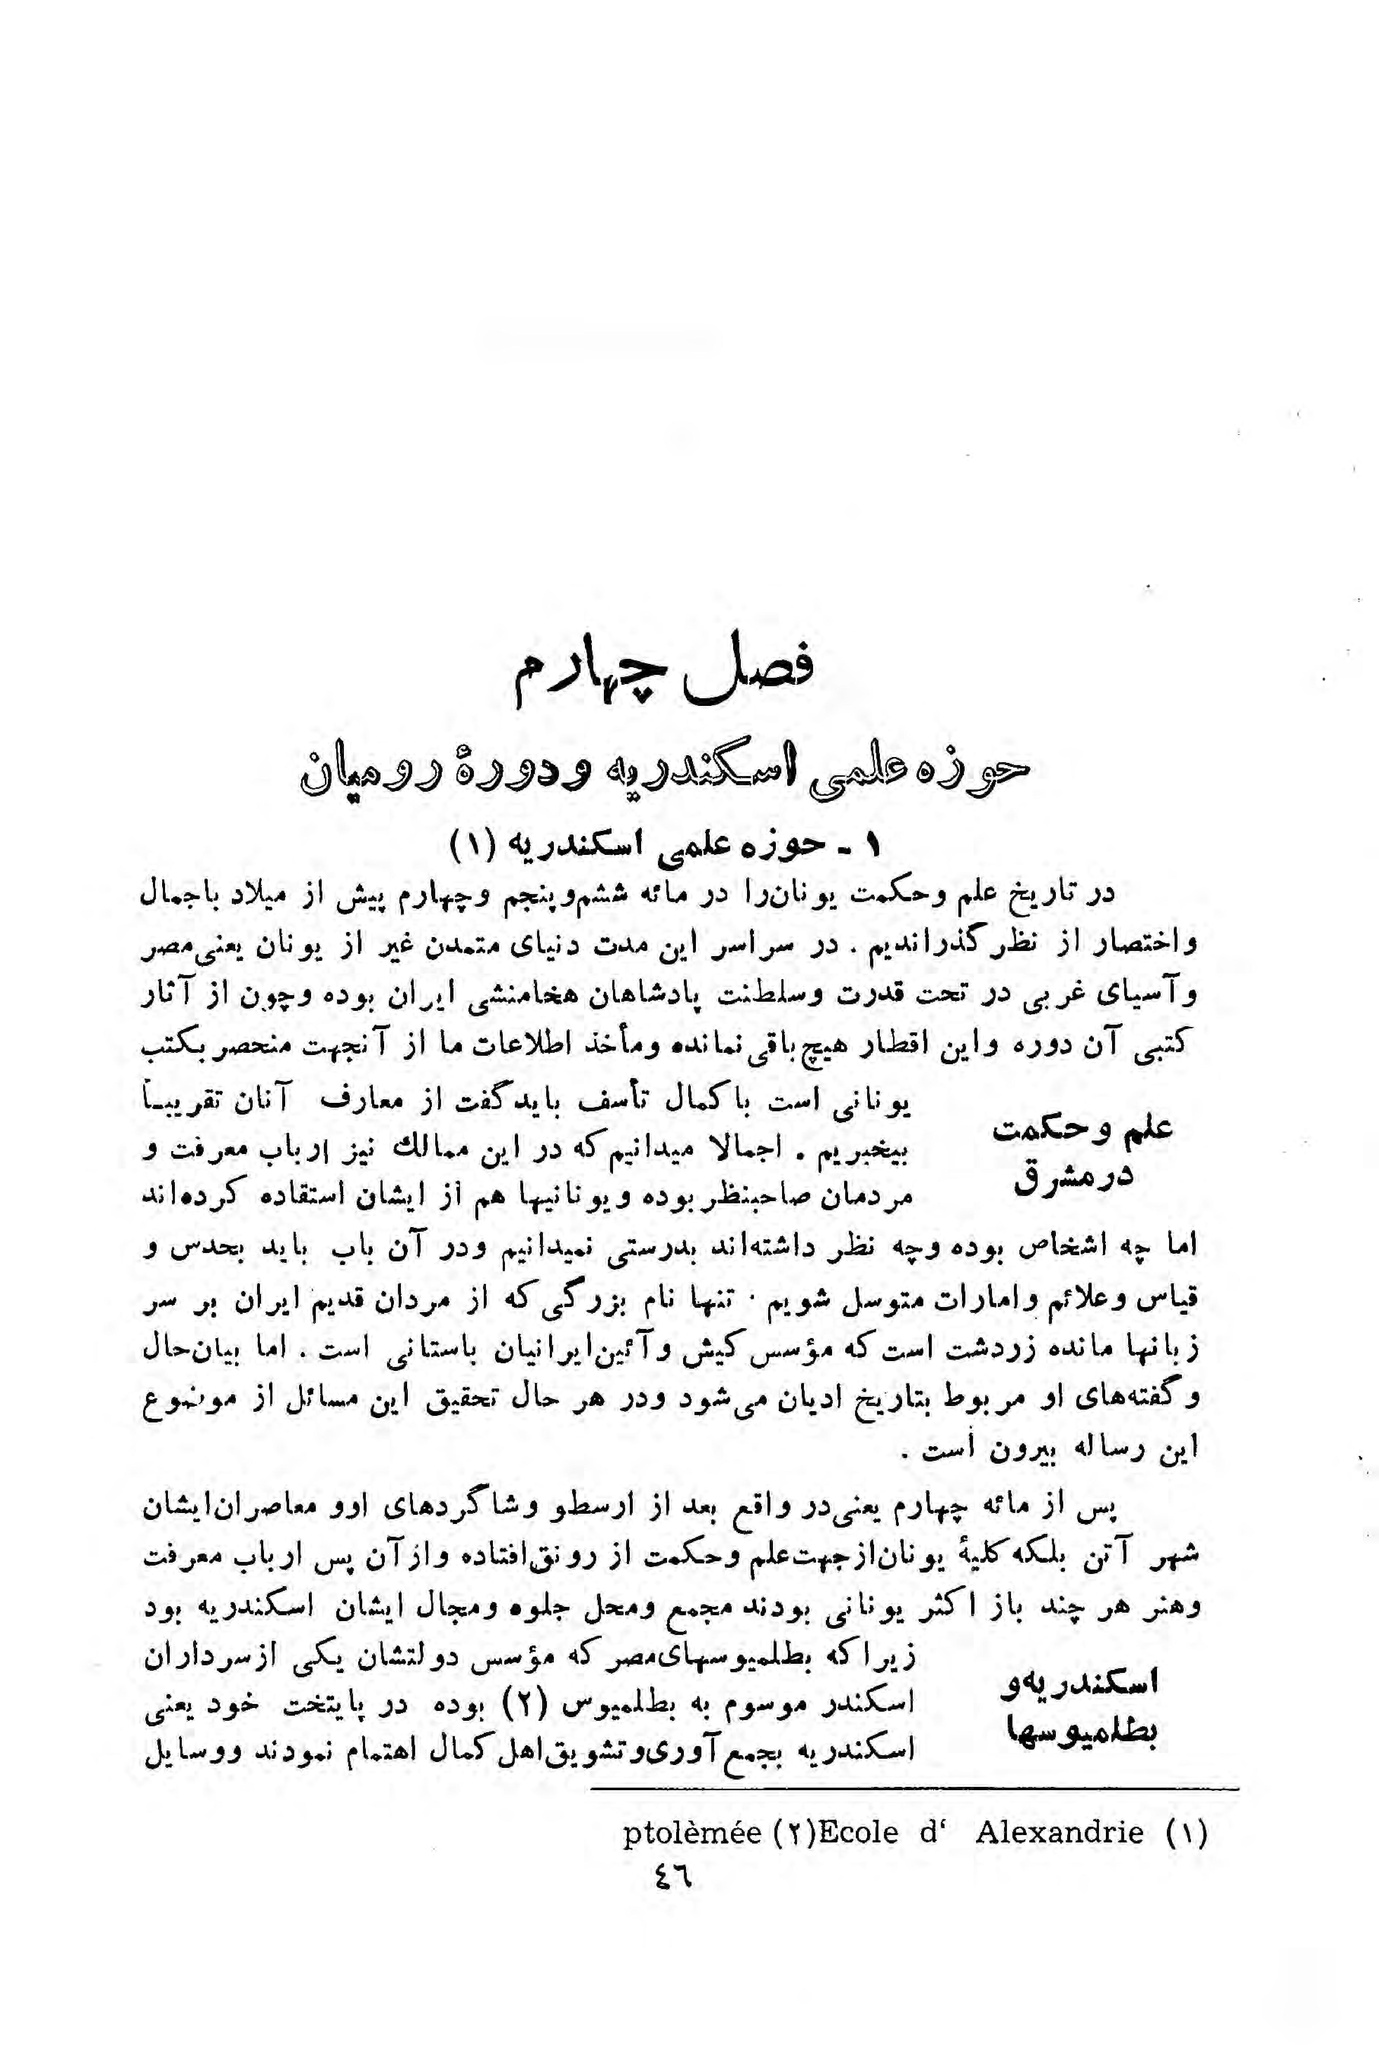 فصل چهارم
حوزه علمی اسکندریه و دورهٔ رومیان
۱ - حوزه علمی اسکندریه (۱)
در تاریخ علم وحکمت یونان‌را در مائه ششم‌وپنجم وچهارم پیش از میلاد باجمال
واختصار از نظر گذراندیم . در سراسر این مدت دنیای متمدن غیر از یونان یعنی‌مصر
وآسیای غربی در تحت قدرت وسلطنت پادشاهان هخامنشی ایران بوده وچون از آثار
کتبی آن دوره واین اقطار هیچ‌باقی‌نمانده ومأخذ اطلاعات ما از آنجهت منحصر بکتب
علم وحکمت
در مشرق
یونانی است باکمال تأسف باید گفت از معارف آنان تقریبـاً
بیخبریم . اجمالا میدانیم که در این ممالك نیز ارباب معرفت و
مردمان صاحبنظر بوده ویونانیها هم از ایشان استفاده کرده‌اند
اما چه اشخاص بوده وچه نظر داشته‌اند بدرستی نمیدانیم ودر آن باب باید بحدس و
قیاس وعلائم وامارات متوسل شویم . تنها نام بزرگی که از مردان قدیم ایران بر سر
زبانها مانده زردشت است که مؤسس کیش وآئین‌ایرانیان باستانی است . اما بیان‌حال
وگفته‌های او مربوط بتاریخ ادیان می‌شود ودر هر حال تحقیق این مسائل از موضوع
این رساله بیرون است .
پس از مائه چهارم یعنی‌در واقع بعد از ارسطو وشاگردهای اوو معاصران‌ایشان
شهر آتن بلکه کلیهٔ یونان‌ازجهت‌علم وحکمت از رونق‌افتاده وازآن پس ارباب معرفت
وهنر هر چند باز اکثر یونانی بودند مجمع ومحل جلوه ومجال ایشان اسکندریه بود
اسکندریه‌و
بطلمیوسها
زیراکه بطلمیوسهای‌مصر که مؤسس دولتشان یکی ازسرداران
اسکندر موسوم به بطلمیوس (۲) بوده در پایتخت خود یعنی
اسکندریه بجمع‌آوری‌وتشویق‌اهل‌کمال اهتمام نمودند ووسایل
(۱) Ecole d‘ Alexandrie (۲) ptolèmée
٤٦